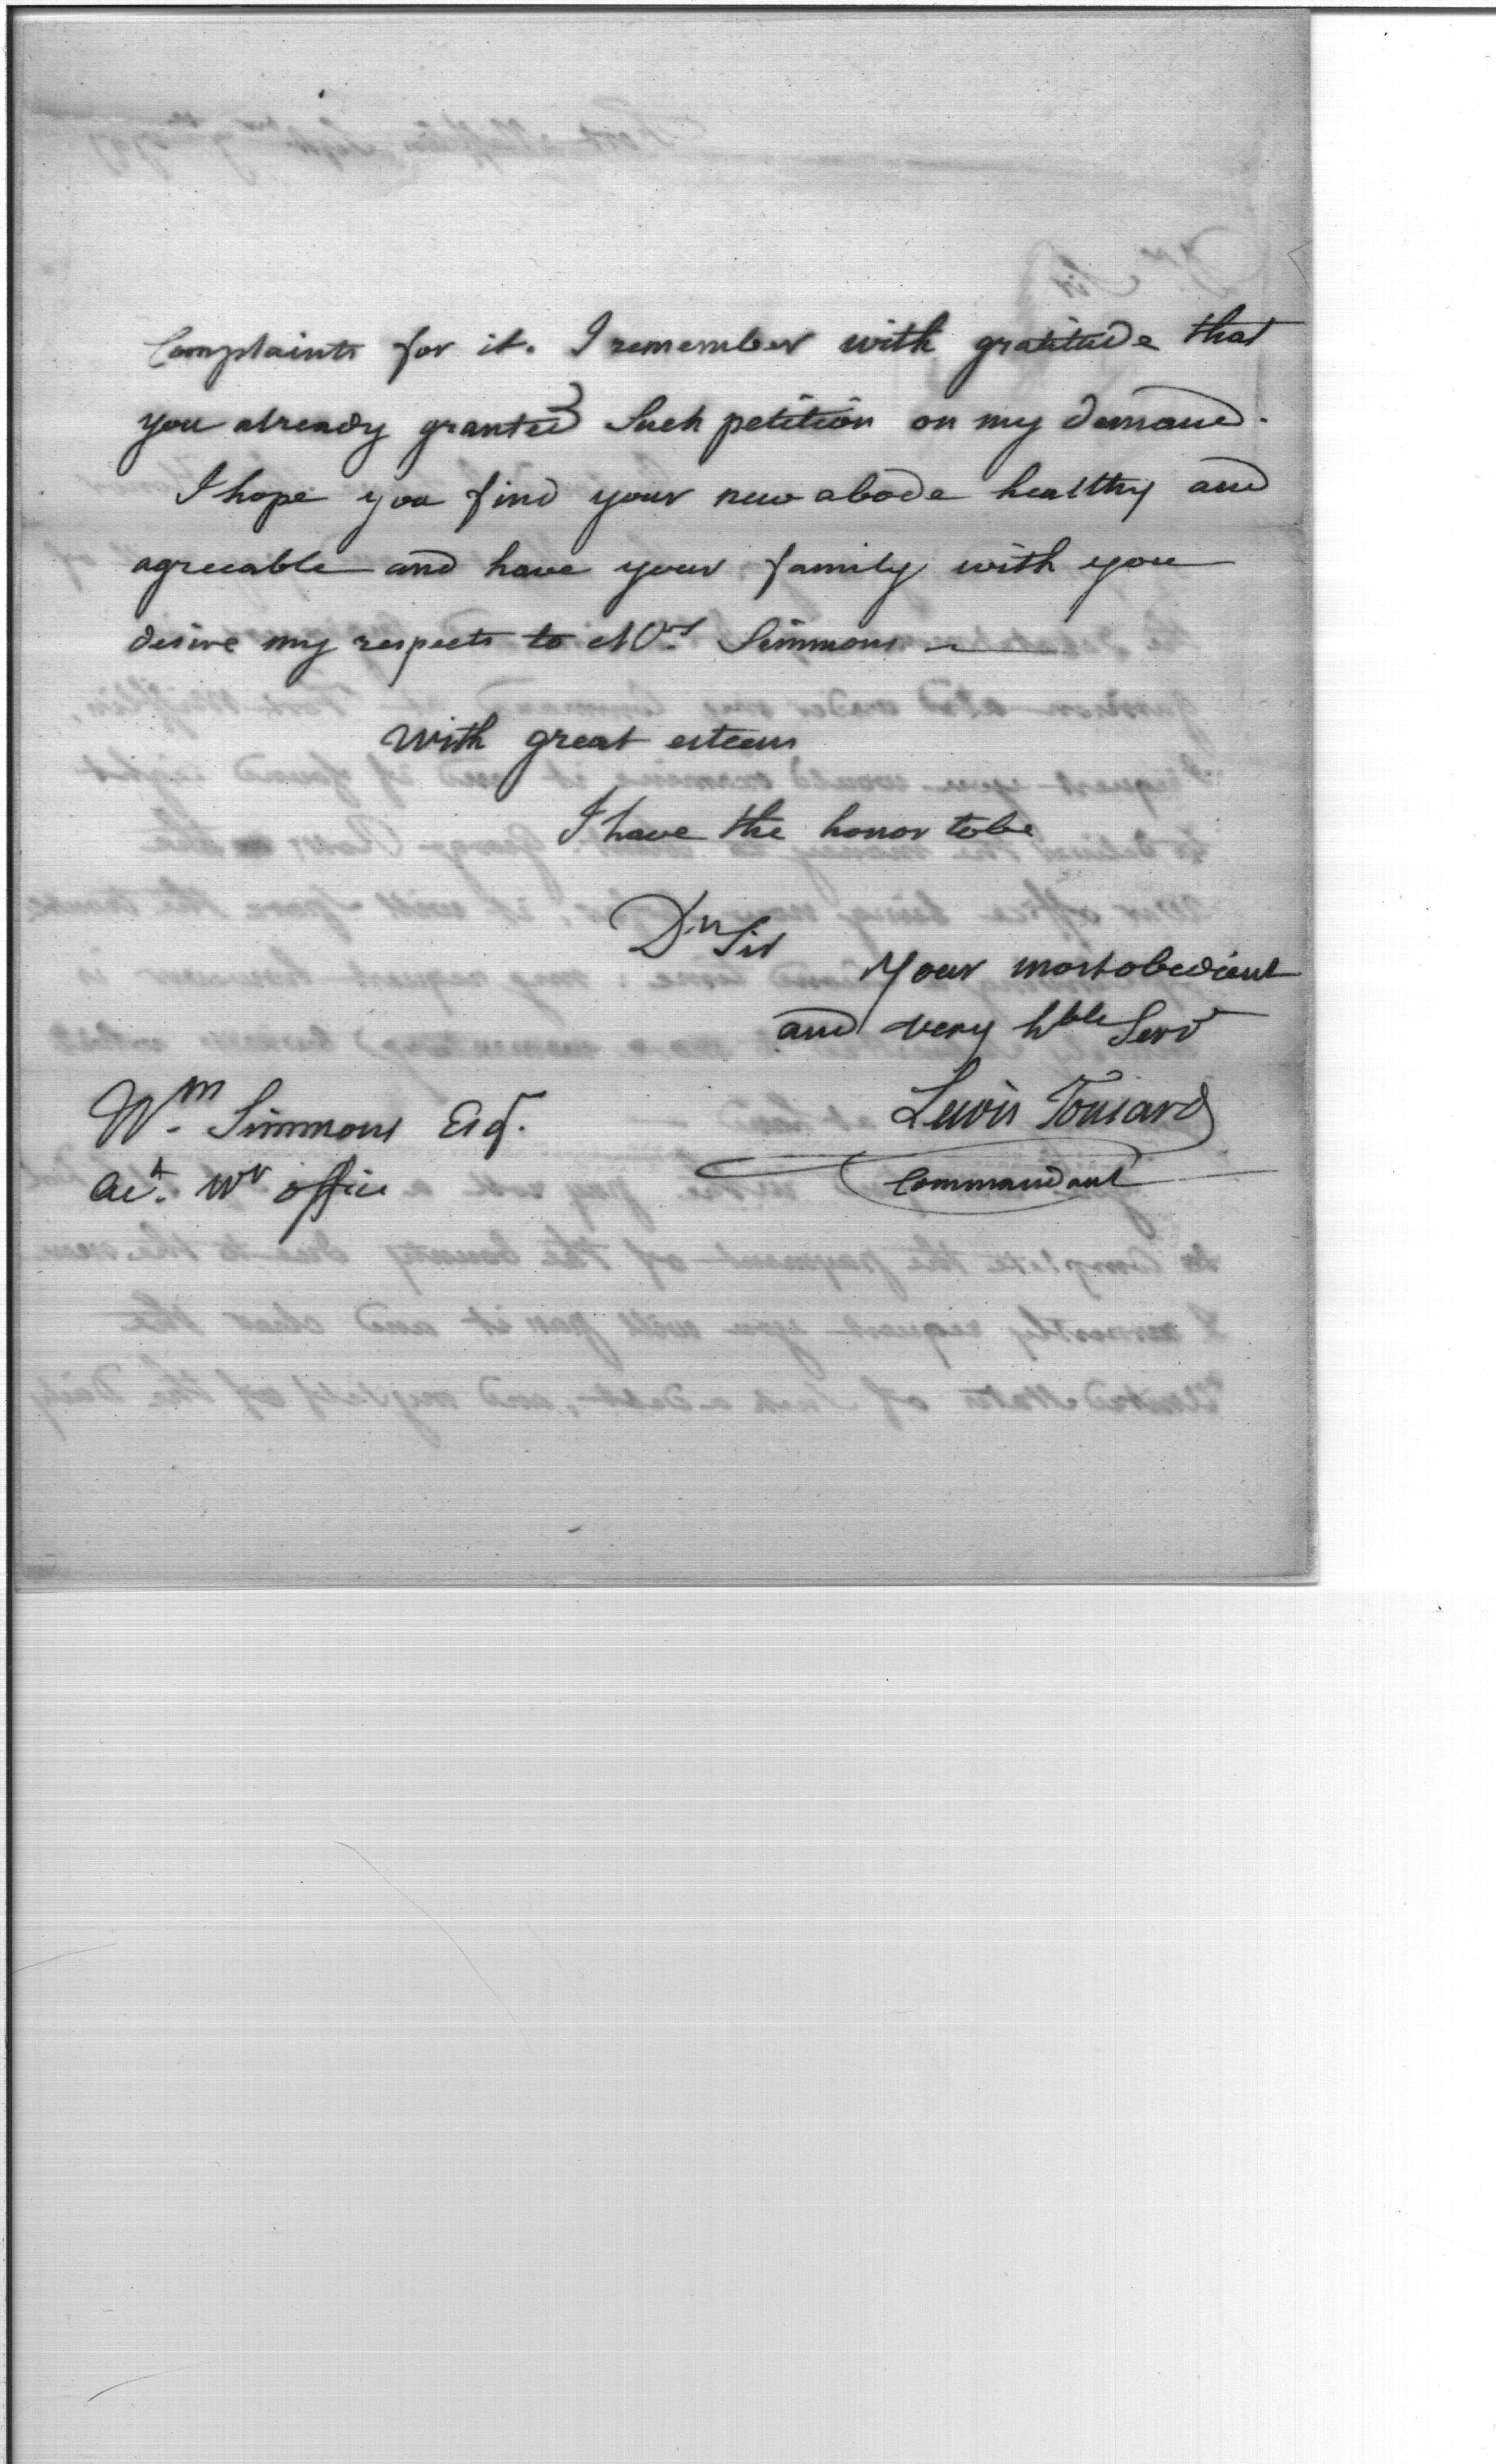 Complaints for it. I remember with gratitude that
you already granted Such petition on my demand.
I hope you find your new abode healthy and
agreeable and have your family with you
desire my respects to Mrs Simmons
With great esteem
I have the honor to be
Dr Sir
Your most obedient
and very hble Servt
Lewis Tousard
Commandant
Wm Simmons Esq.
Act. Wr office